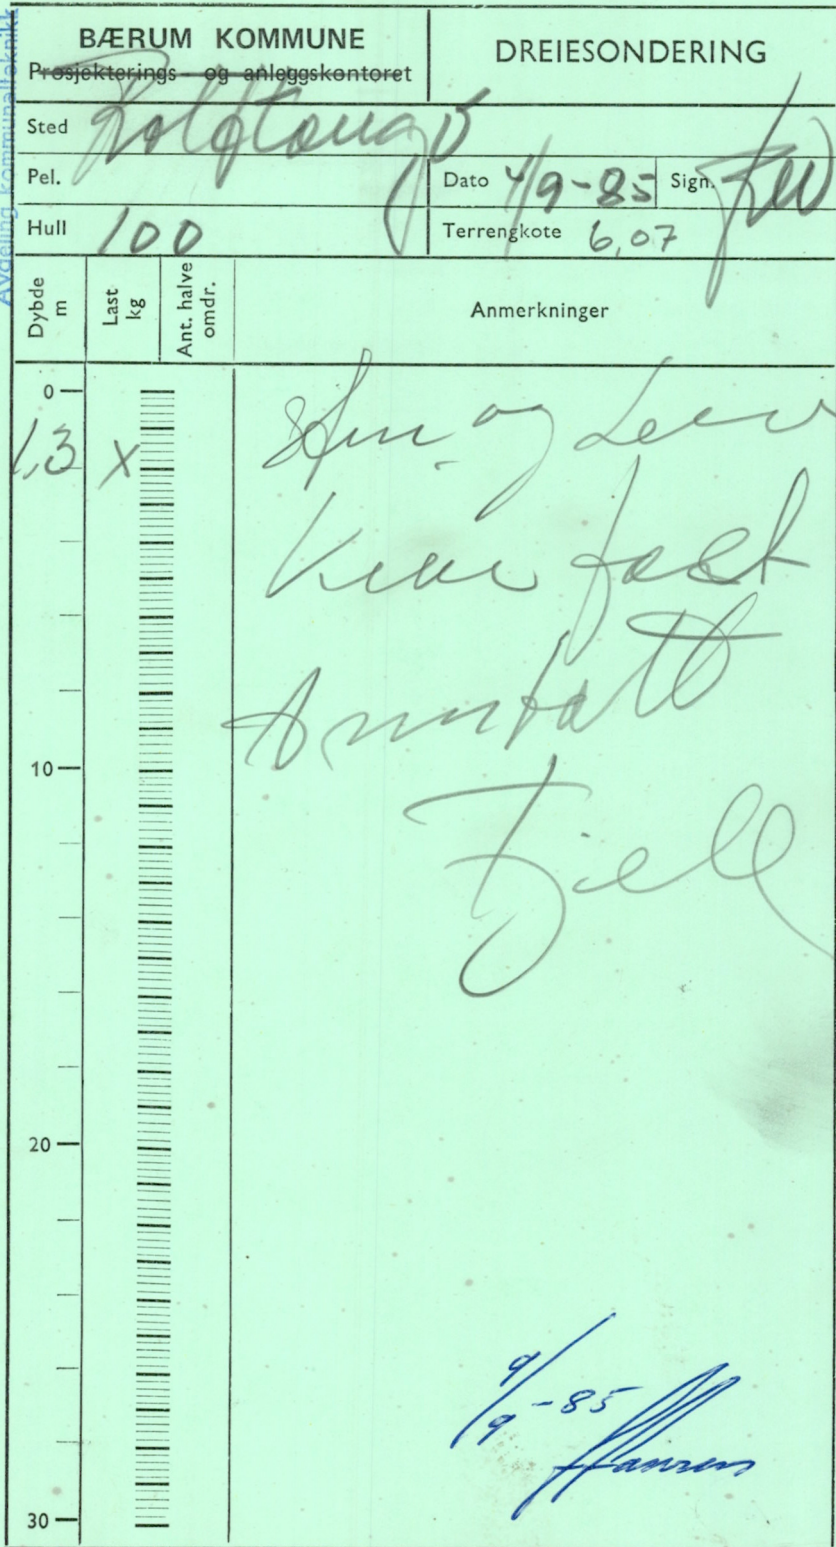 Avdeling kommunalteknikk
BÆRUM KOMMUNE
Prosjekterings- og anleggskontoret
DREIESONDERING
Sted
Pel.
Dato 4/9-85 Sign.
Hull 100
Terrengkote 6,07
Dybde m
Last kg
Ant. halve omdr.
Anmerkninger
0
1,3 x
og Leire
fast
Antatt
Fjell
10
20
30
9/9-85
Hansen